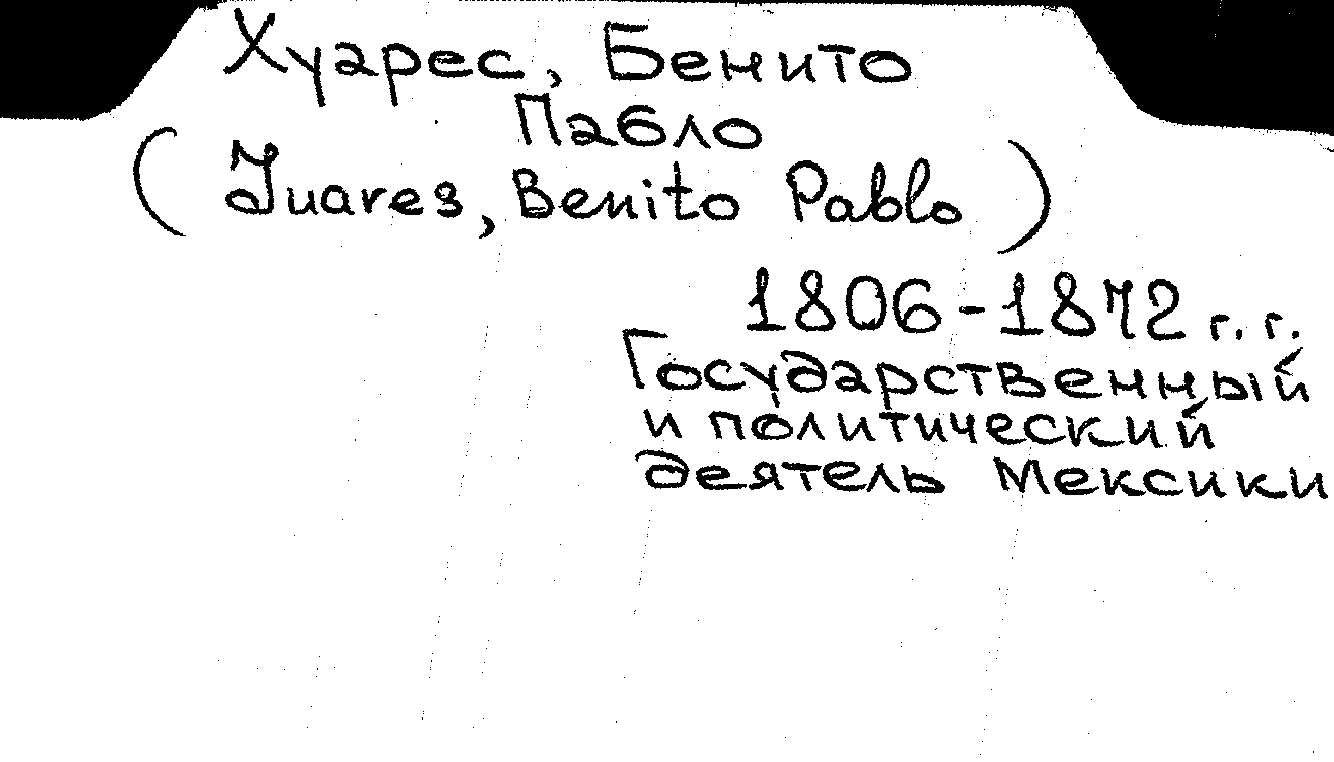 Хуарес, Бенито
Пабло
(Juares, Benito Pablo)
1806-1872 г.г.
Государственный
и политический
деятель Мексики